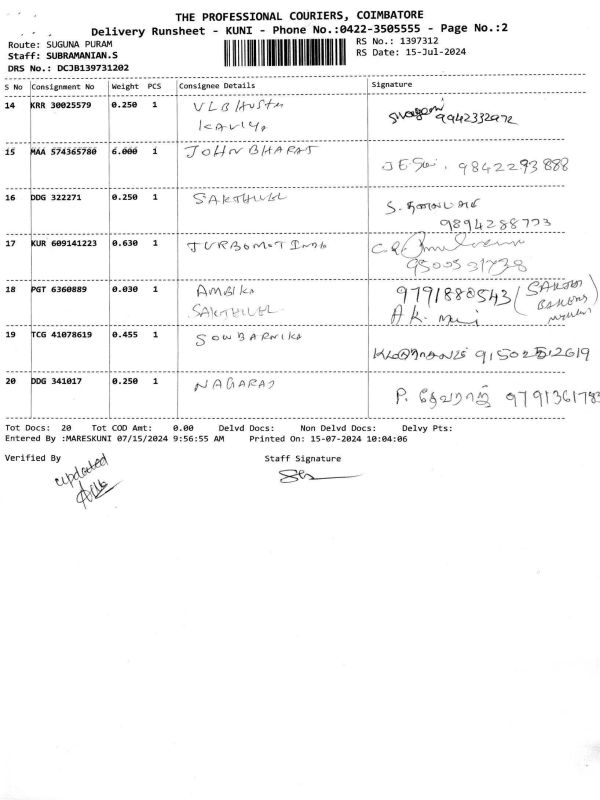 THE PROFESSIONAL COURIERS, COIMBATORE
Delivery Runsheet - KUNI - Phone No.:0422-3505555 - Page No.:2
Route: SUGUNA PURAM
RS No.: 1397312
Staff: SUBRAMANIAN.S
RS Date: 15-Jul-2024
DRS No.: DCJB139731202
S No Consignment No Weight PCS Consignee Details Signature
14 KRR 30025579 0.250 1 VLB 9942332972
KAVIYA
15 MAA 574365780 6.000 1 JOHN BHARAT 9842293888
16 DDG 322271 0.250 1 SAKTHIVEL S.
9894288773
17 KUR 609141223 0.630 1 TURBOMOT INDIA
9500531738
18 PGT 6360889 0.030 1 AMBIKA 9791880543
SAKTHIVEL A K. BAKERS
19 TCG 41078619 0.455 1 SOWBARNIKA
9150252619
20 DDG 341017 0.250 1 NAGARAJ P. தேவராஜ் 9791361783
Tot Docs: 20 Tot COD Amt: 0.00 Delvd Docs: Non Delvd Docs: Delvy Pts:
Entered By :MARESKUNI 07/15/2024 9:56:55 AM Printed On: 15-07-2024 10:04:06
Verified By Staff Signature
updated